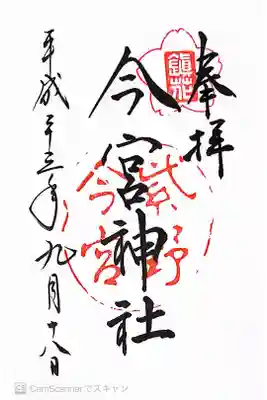 奉拝
鎮花
今宮神社
紫野
今宮
平成二十三年九月十八日
CamScannerでスキャン